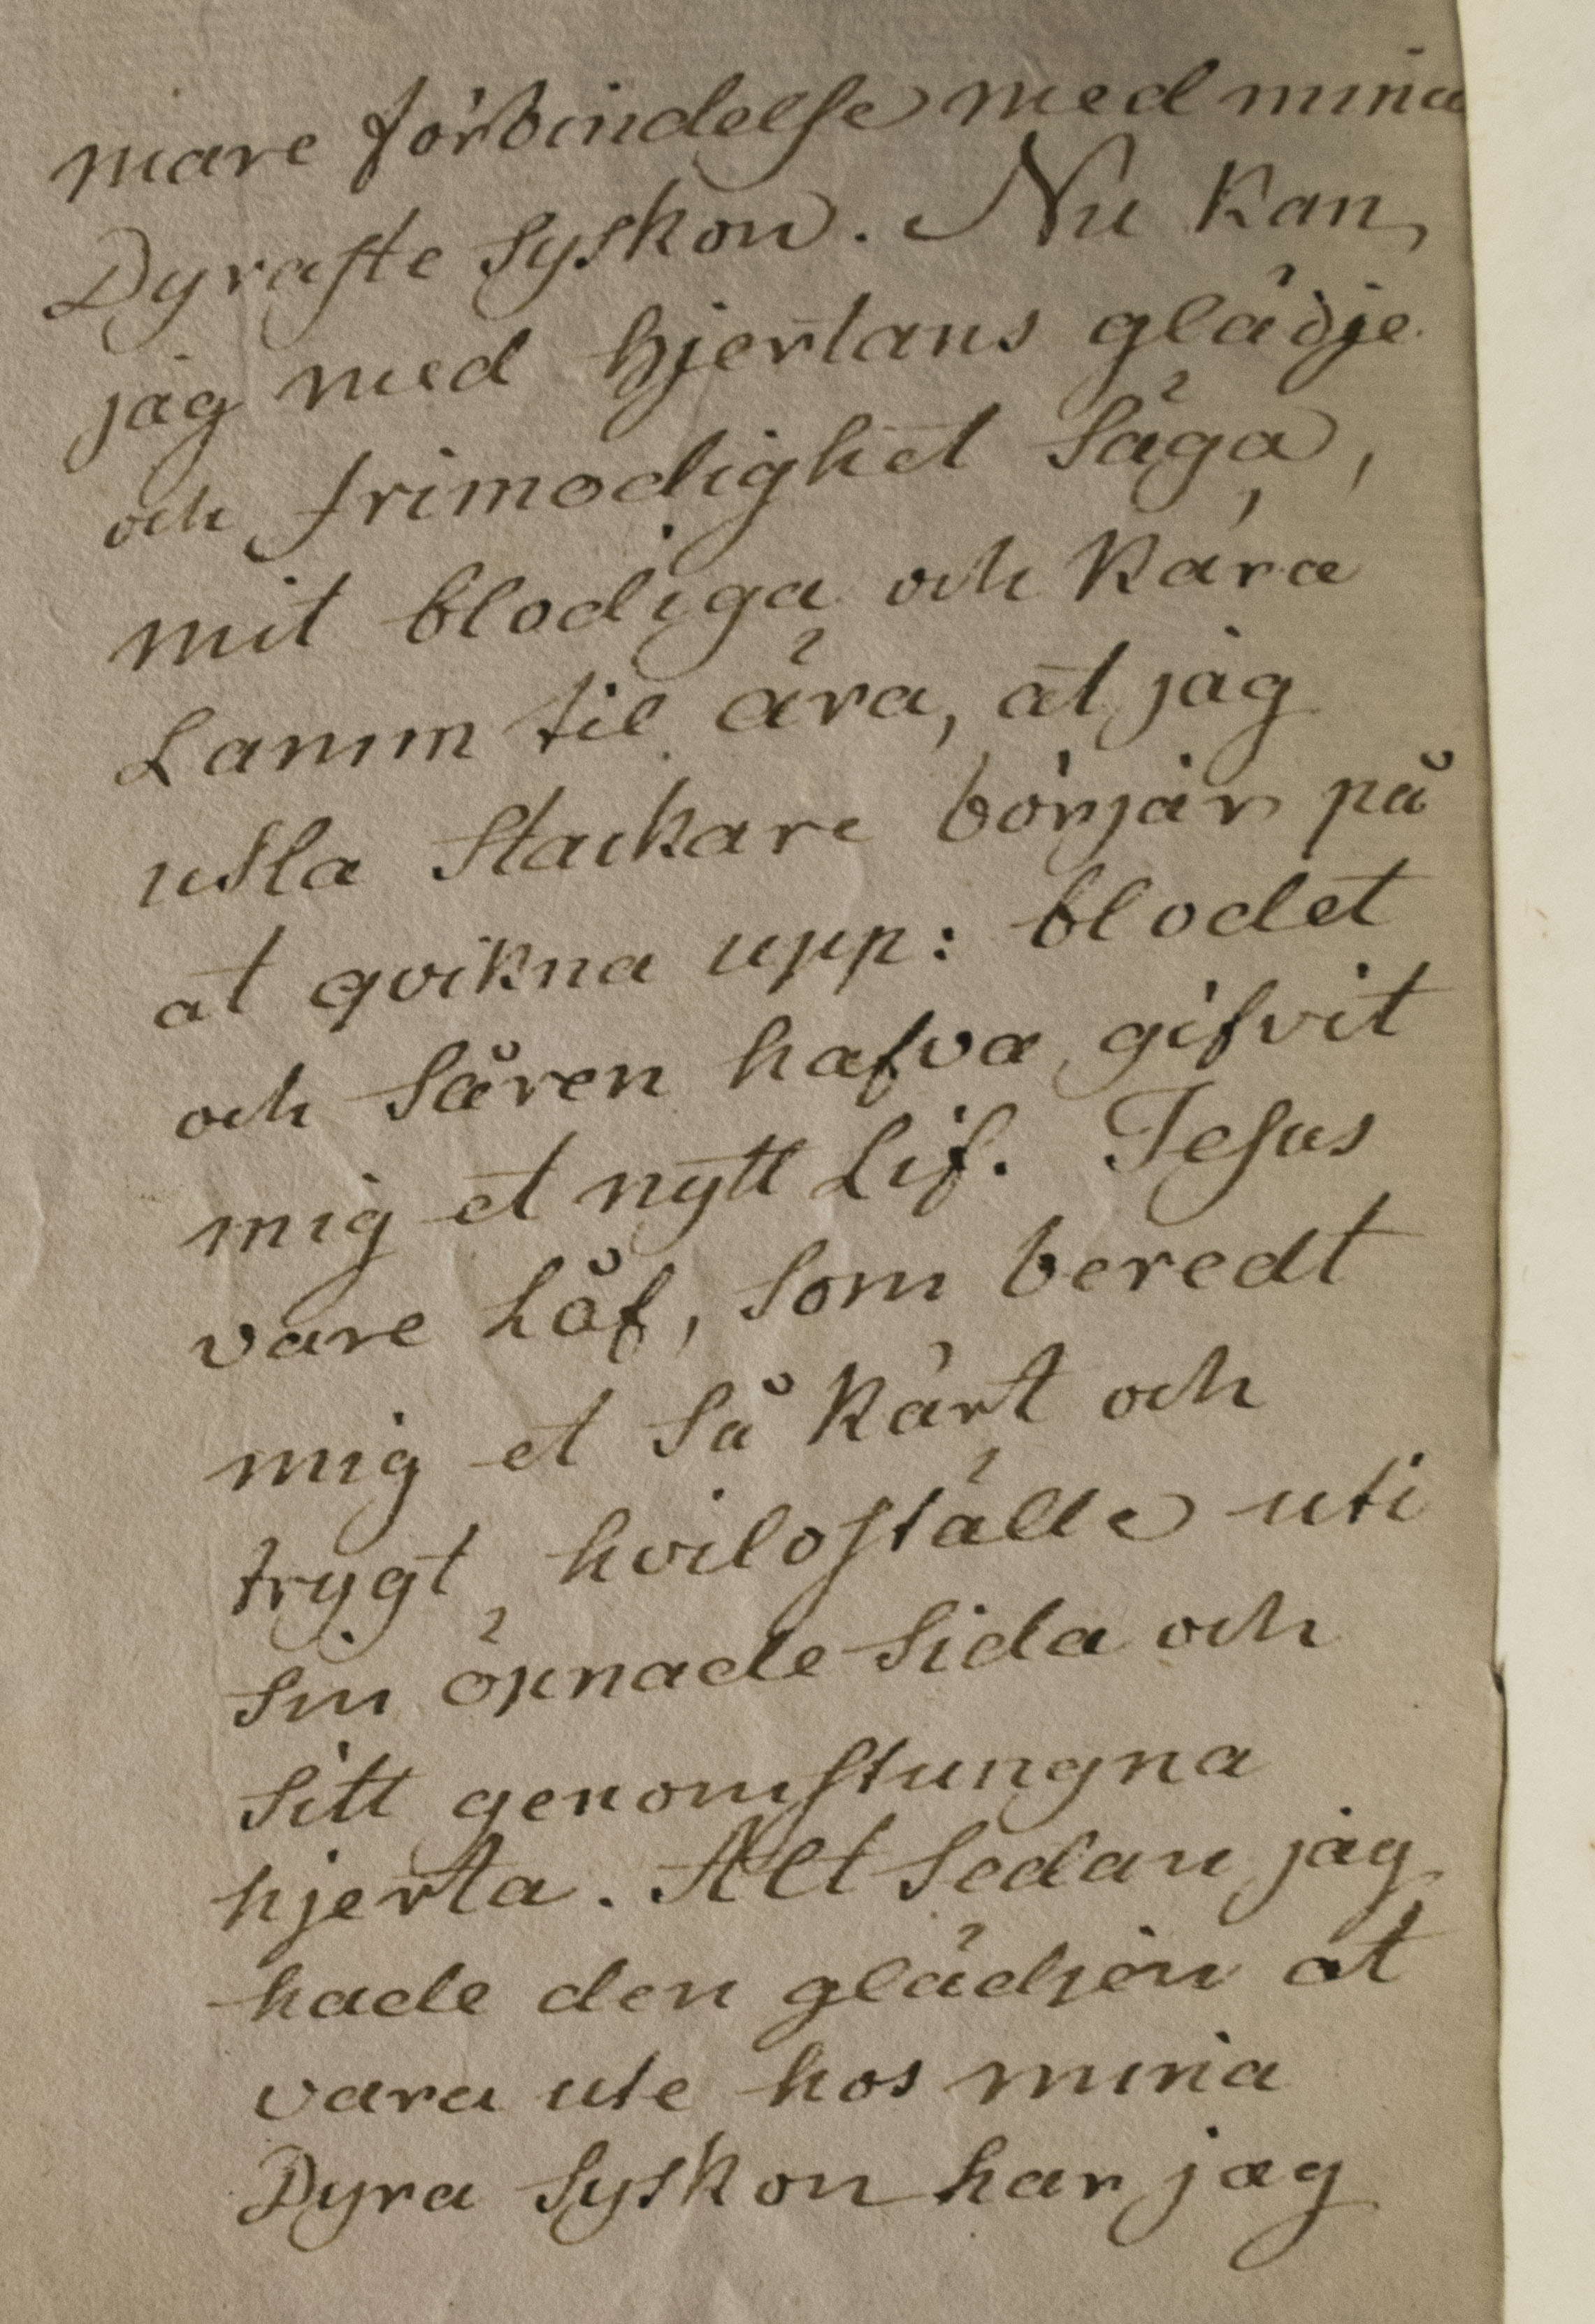 mare förbindelse med mina
Dyraste Syskon. Nu kan
jag med hjertans glädje
och frimodighet Säga,
mit blodiga och kära
Lamm til ära, at jag
usla Stackare börjar på
at qvikna upp: blodet
och Såren hafva gifvit
mig et nytt Lif. Jesus
vare Låf, Som beredt
mig et Så kärt och
trygt hviloställe uti
Sin öpnade Sida och
Sitt genomstungna
hjerta. Alt Sedan jag
hade den glädjen at
vara ute hos mina
Dyra Syskon har jag